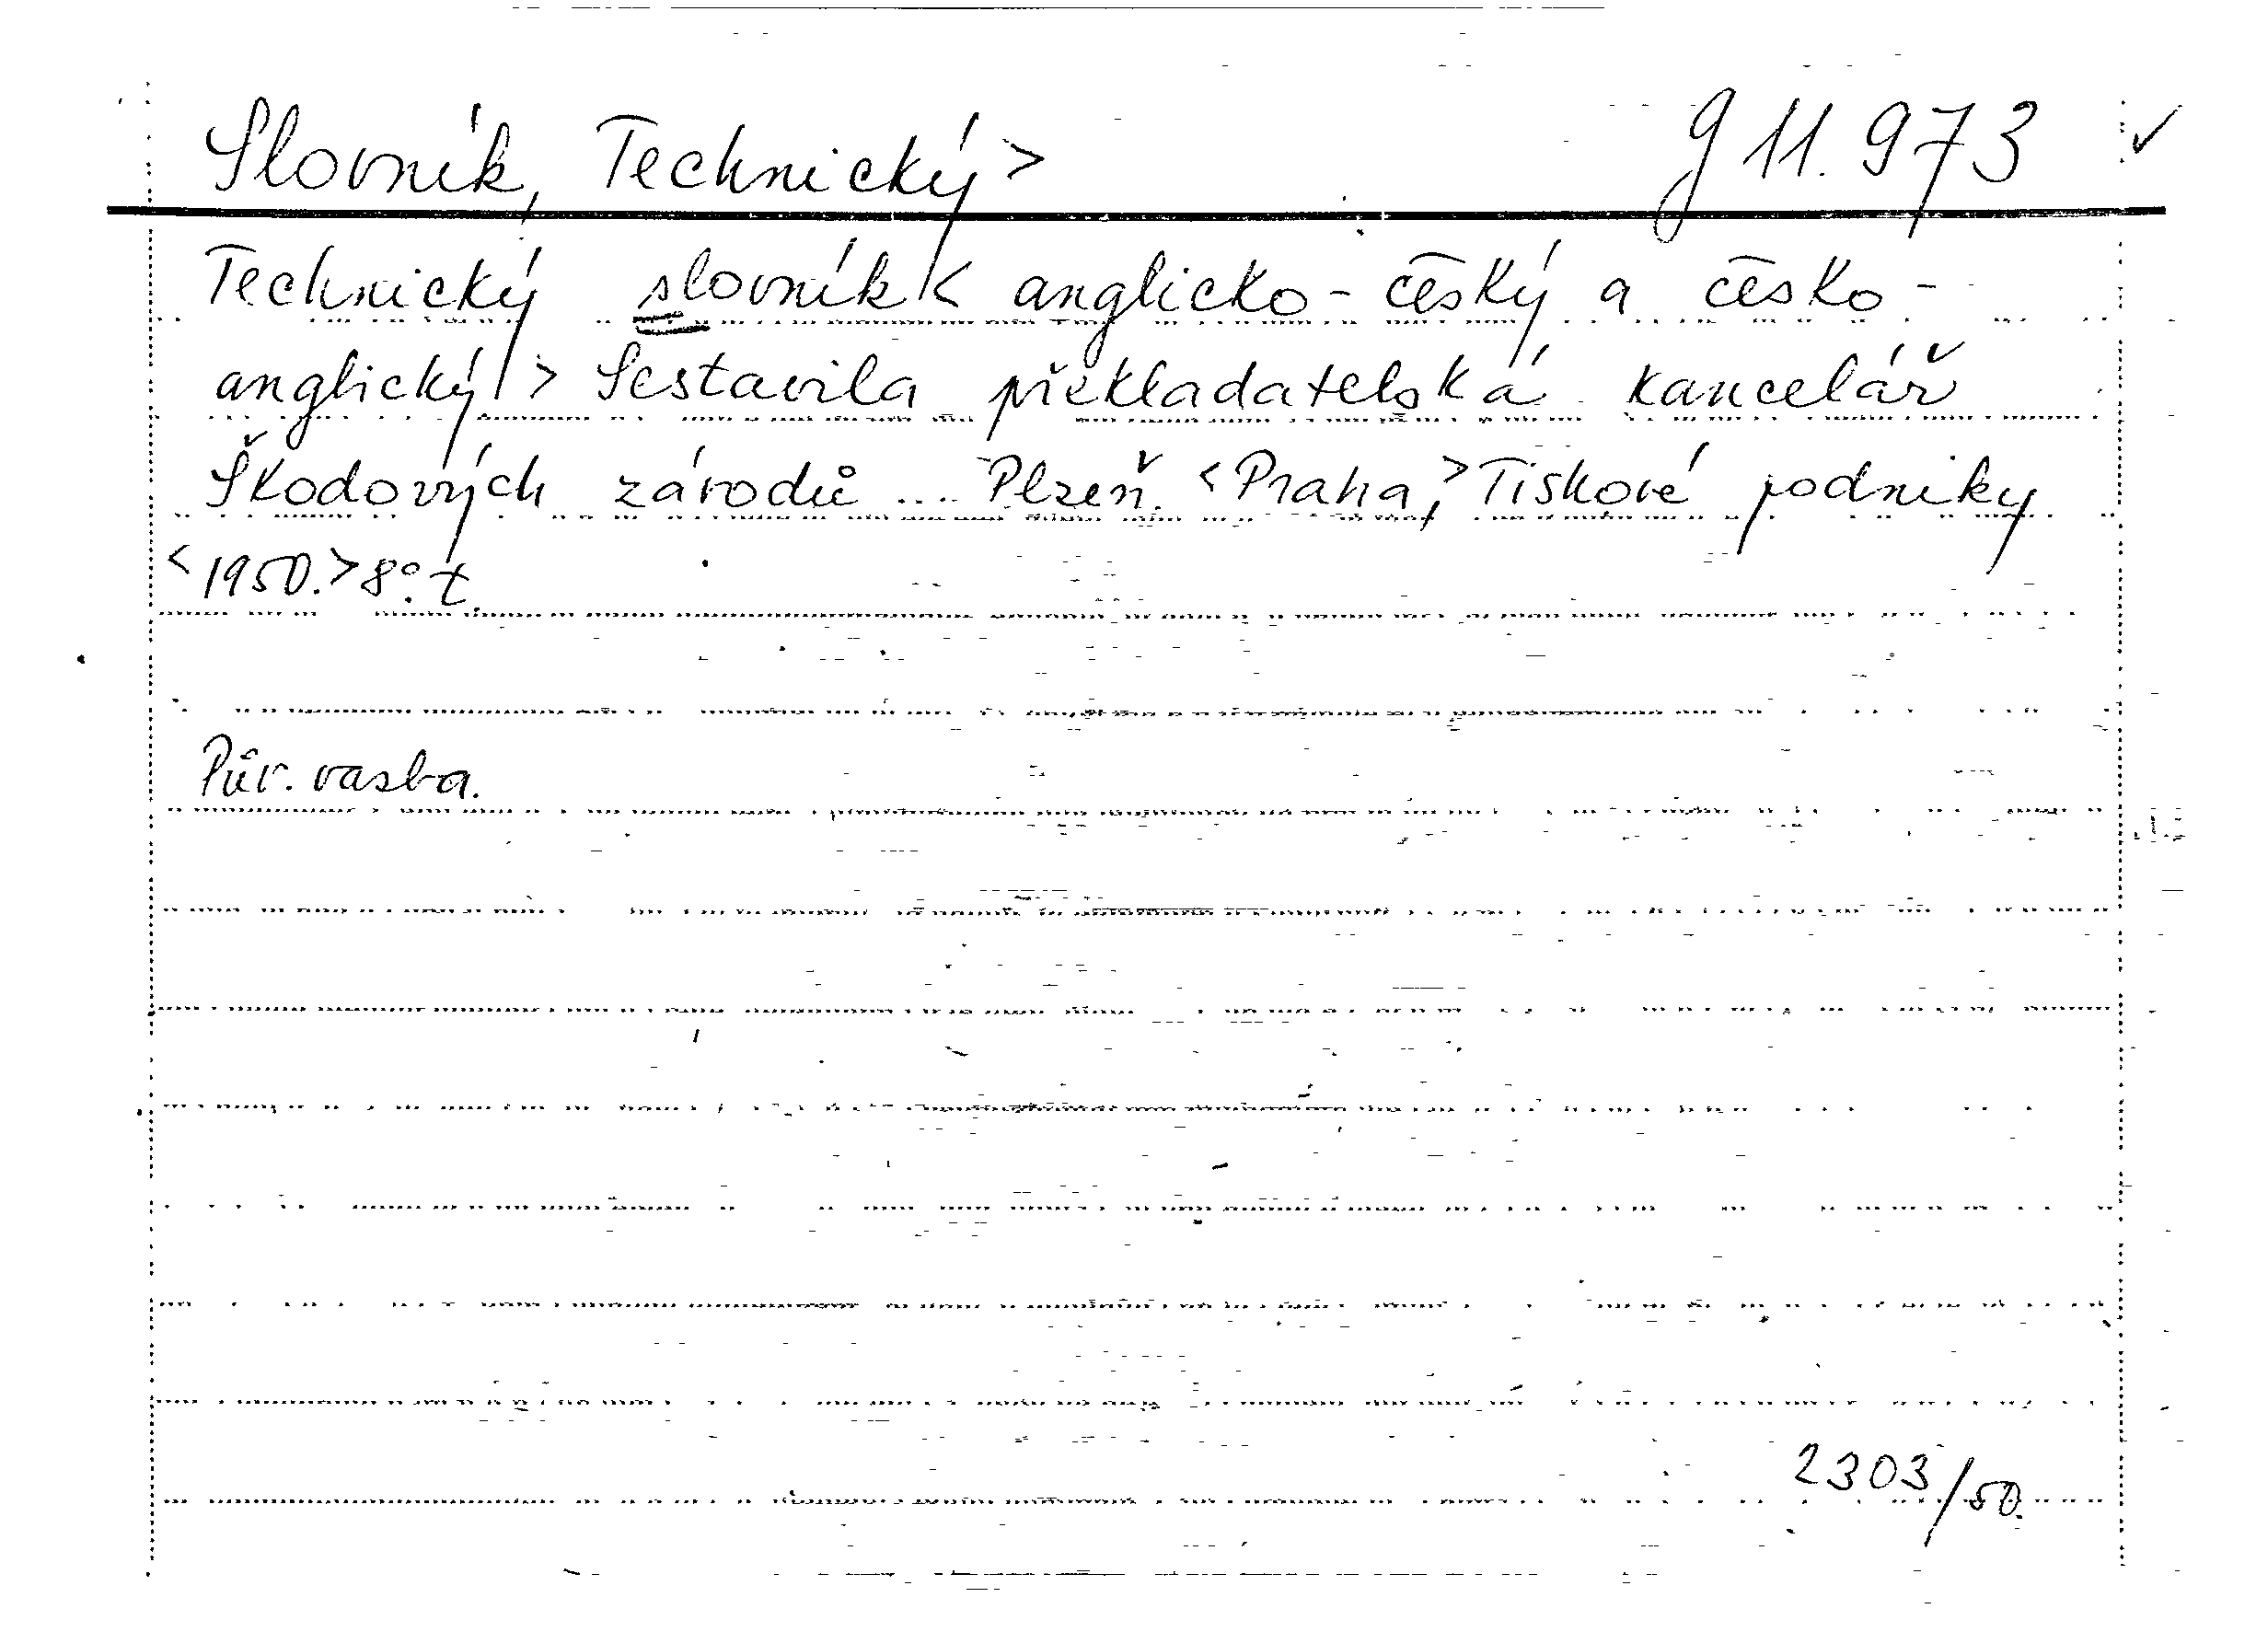 Slovník, Technický> g 11.973 ✓
Technický slovník < anglicko-český a česko-
anglický > Sestavila překladatelská kancelář
Škodových závodů .... Plzeň. <Praha,> Tiskové podniky
<1950.> 8°. t.
Pův. vazba.
2303/50.